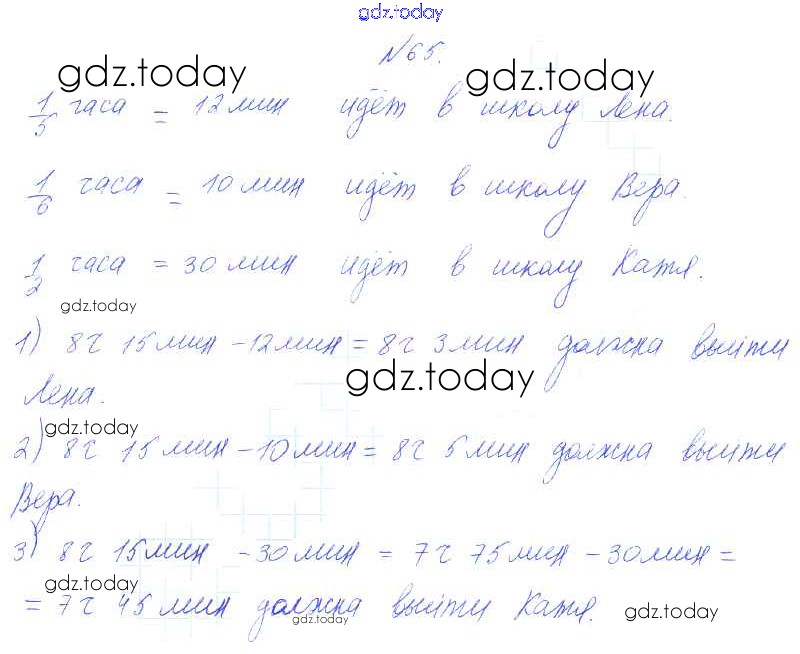 gdz.today
№65.
gdz.today gdz.today
1/5 часа = 12 мин идёт в школу Лена.
1/6 часа = 10 мин идёт в школу Вера.
1/2 часа = 30 мин идёт в школу Катя.
gdz.today
1) 8 ч 15 мин - 12 мин = 8 ч 3 мин должна выйти
gdz.today
Лена.
gdz.today
2) 8 ч 15 мин - 10 мин = 8 ч 5 мин должна выйти
Вера.
3) 8 ч 15 мин - 30 мин = 7 ч 75 мин - 30 мин =
gdz.today
= 7 ч 45 мин должна выйти Катя.
gdz.today gdz.today